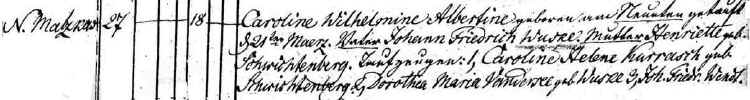 N. Matzkow 27 18 Caroline Wilhelmine Albertine geboren am Neunten getauft
d 21sten Maerz. Vater Johann Friedrich Wusee. Mutter Henriette geb.
Schwichtenberg. Taufzeugen: 1, Caroline Helene Kurrasch geb
Schwichtenberg. 2, Dorothea Maria Vandersee geb Wusee 3, Joh. Friedr. Wendt.